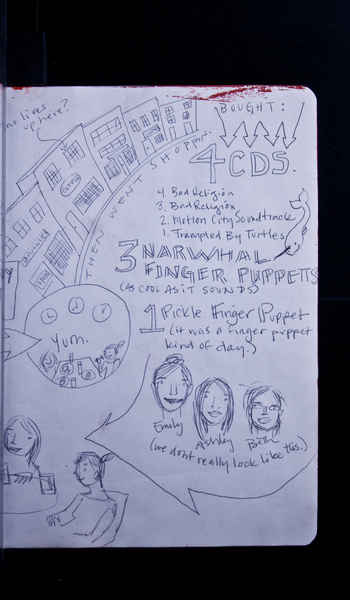 no lives
up here?
BOUGHT:
THEN WENT SHOPPIN.
4 CDS.
4. Bad Religion
3. Bad Religion
2. Motion City Soundtrack
1. Trampled By Turtles
3 NARWHAL
FINGER PUPPETS
(AS COOL AS IT SOUNDS)
1 Pickle Finger Puppet
(it was a finger puppet
kind of day.)
Yum.
Emily
Ashley
Beth
(we dont really look like this.)